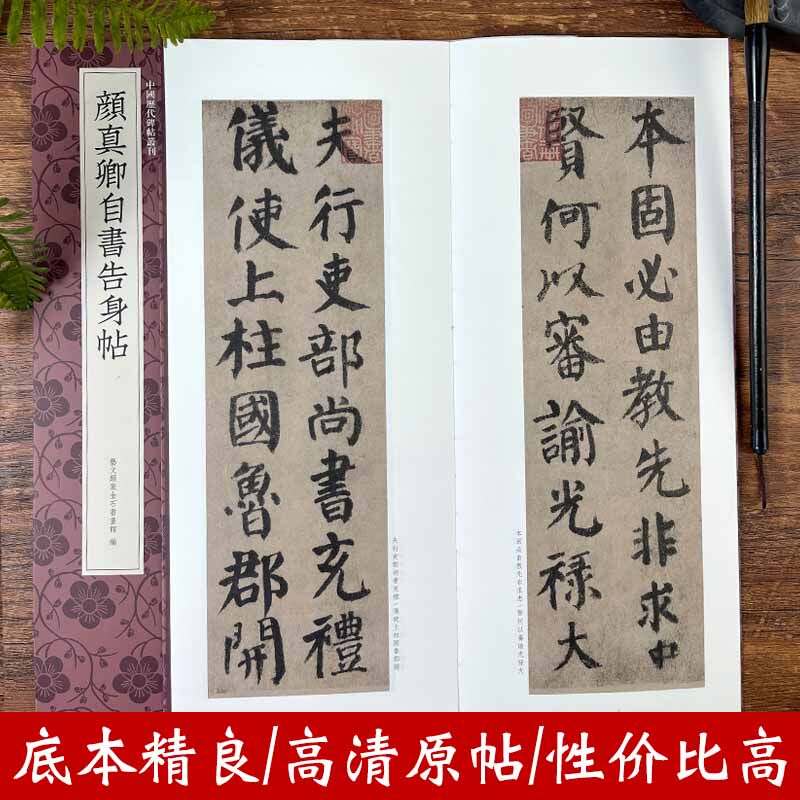 中國歷代碑帖叢刊
顏真卿自書告身帖
藝文類聚金石書畫館 編
本固必由教先非求中
賢何以審諭光祿大
本固必由教先非求忠/賢何以審諭光祿大
夫行吏部尚書充禮
儀使上柱國魯郡開
夫行吏部尚書充禮/儀使上柱國魯郡開
底本精良/高清原帖/性价比高